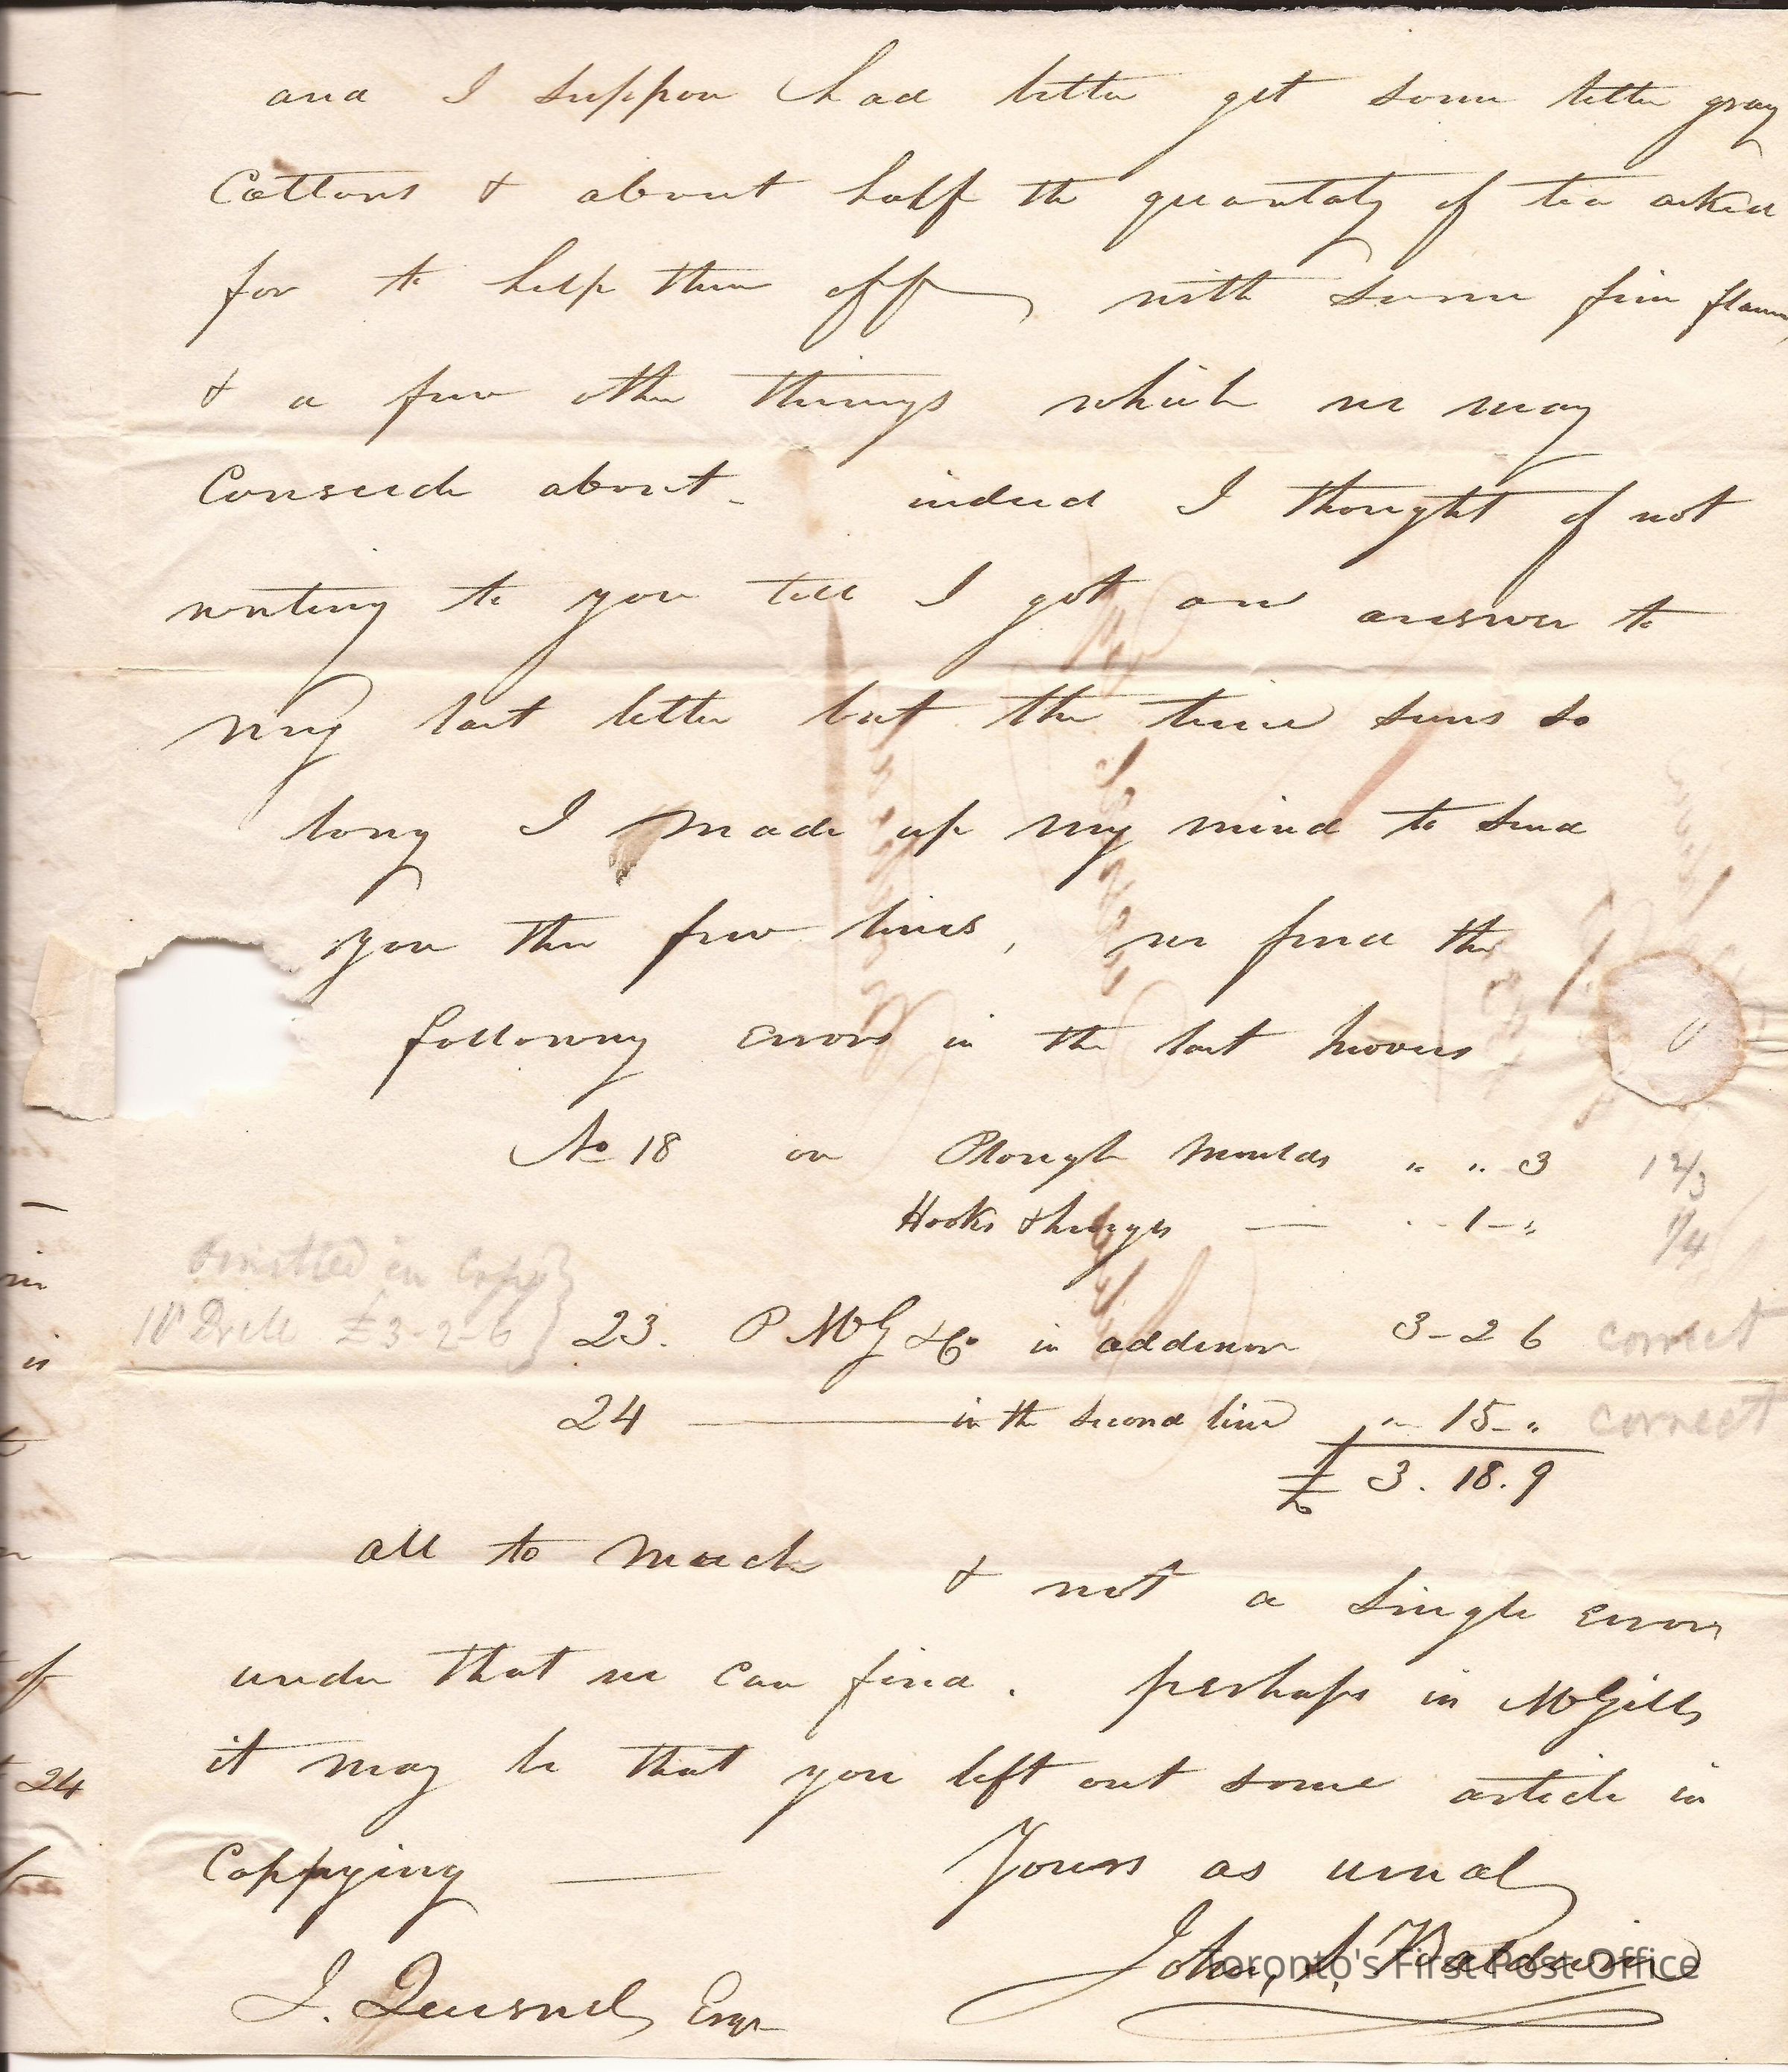 and I suppose had better get some better gray
Cottons & about half the quantaty of tea asked
for to help them off with some fine flann
& a few other things which we may
Conclude about - indeed I thought of not
writing to you till I got an answer to
my last letter but the time seems so
long I made up my mind to send
you these few lines, we find the
following errors in the last Invoices
No 18 on Plough Moulds " " 3 1 2/3
Hooks & hinges — " 1 - " 1/4
omitted in Copy
1 ps Drill £3-2-6 } 23. P McG & Co in addition 3-2 6 correct
24 — in the second line " 15 - " correct
£ 3. 18. 9
all to much & not a single error
under that we can find. perhaps in McGills
it may be that you left out some article in
Coppying — Yours as usual
John S. Baldwin
J. Quesnel Esqr
Toronto's First Post Office
of
24